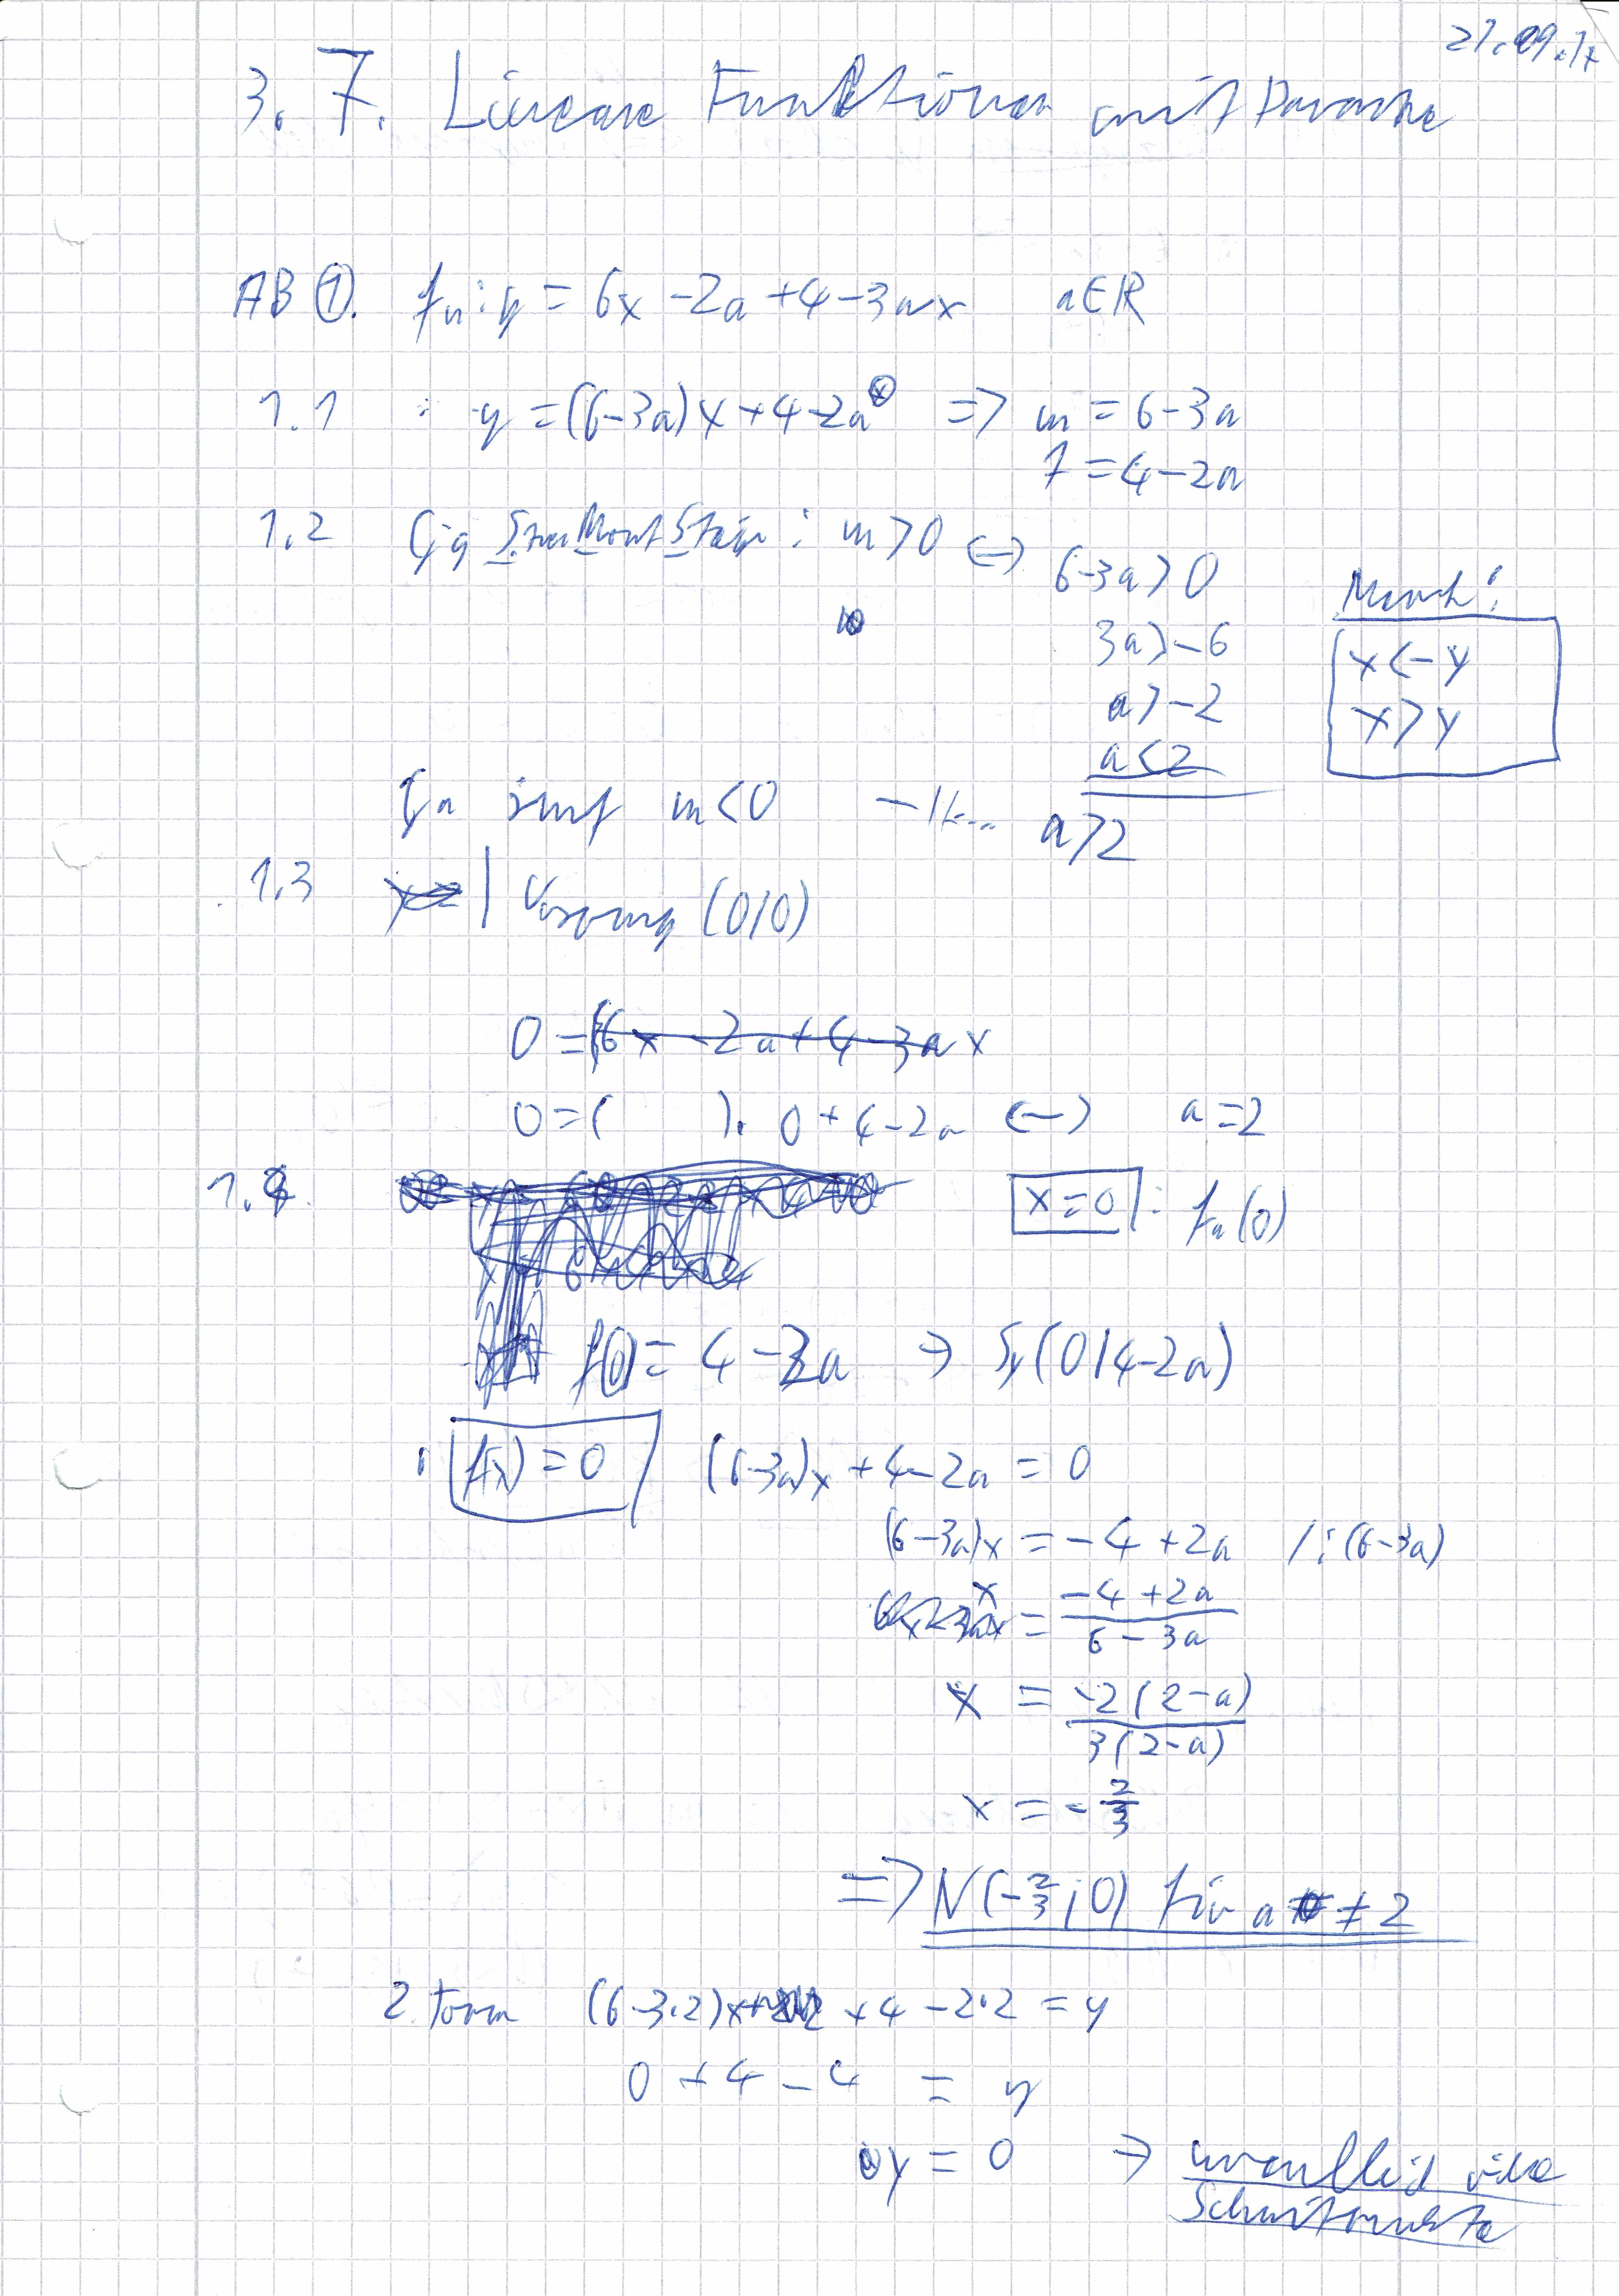 27.09.17
3.7. Lineare Funktionen mit Parameter
AB ①. fa: y = 6x - 2a + 4 - 3ax a∈R
1.1 : y = (6-3a)x + 4 - 2a => m = 6-3a
t = 4-2a
1.2 m > 0 <-> 6-3a > 0
3a > -6
a > -2
a < 2
Merk!
x < -y
x > y
m < 0 a > 2
1.3 Ursprung (0|0)
0 = (6x - 2a + 4 - 3ax
0 = ( ). 0 + 4 - 2a <-> a = 2
1.4. x = 0 : fa(0)
f(0) = 4 - 2a → Sy(0|4-2a)
f(x) = 0 (6-3a)x + 4 - 2a = 0
(6-3a)x = -4 + 2a /:(6-3a)
x = (-4 + 2a)/(6 - 3a)
x = -2(2-a)/3(2-a)
x = -2/3
=> N(-2/3;0) für a ≠ 2
2. (6-3·2)x + 4 - 2·2 = y
0 + 4 - 4 = y
y = 0 → unendlich viele
Schnittpunkte